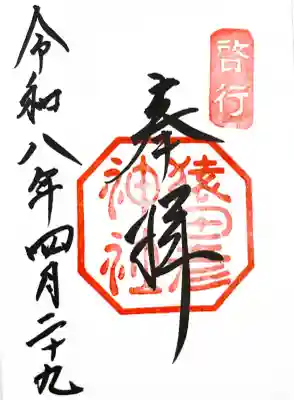 啓行
奉拝
猿田彦
神社
令和八年四月二十九